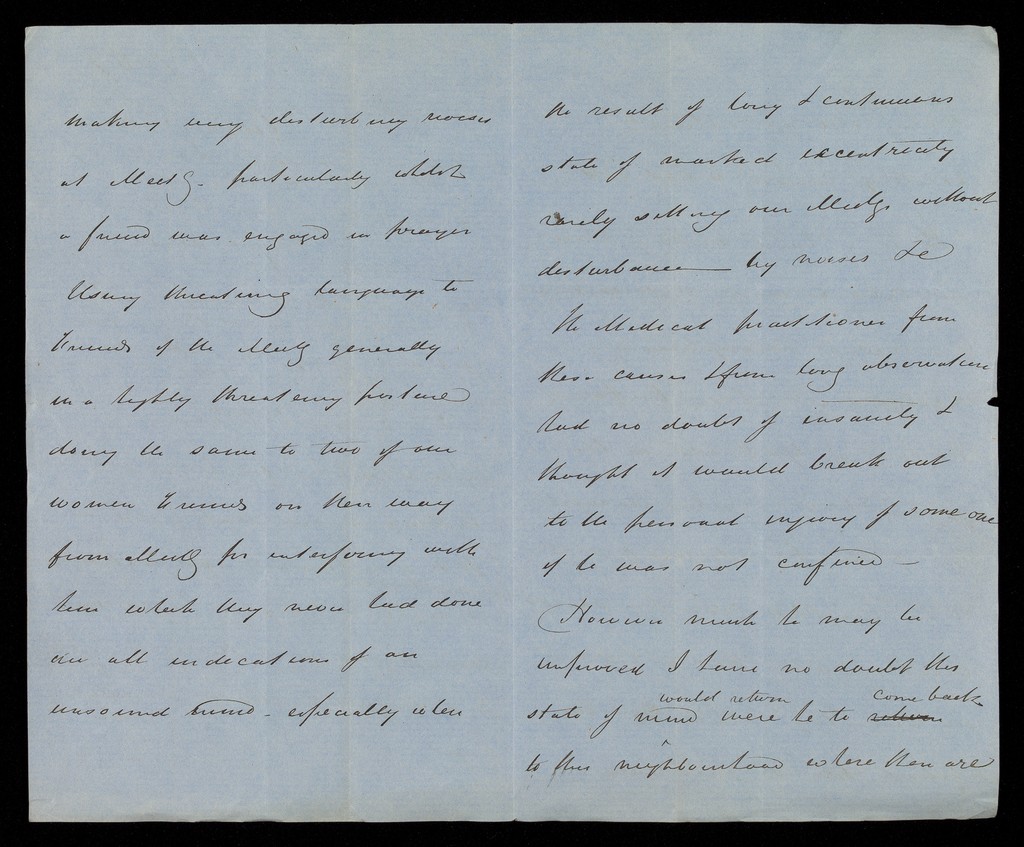 making very disturbing noises
at Meetg. particularly whilst
a friend was engaged in prayer
Using threating language to
Friends of the Meetg generally
in a highly threatening posture
doing the same to two of our
women Friends on their way
from Meetg for interfering with
him which they never had done
are all indications of an
unsound mind - especially when
the result of long & continuous
state of marked excentricity
rarely sitting our Meetgs without
disturbance — by noises &c
The Medical practitioner from
these causes & from long observation
had no doubt of insanity &
thought it would break out
to the personal injury of some one
if he was not confined —
However much he may be
improved I have no doubt this
would return come back
state of mind ^ were he to return
to this neighbourhood where there are